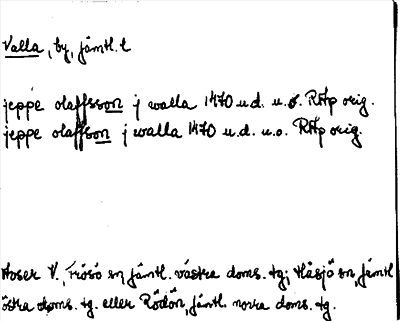 Valla, by, jämtl. l
jeppe olaffsson j walla 1470 u.d. u.o. RAp orig.
jeppe olaffson j walla 1470 u.d. u.o. RAp orig.
Avser V., Frösö sn, jämtl. västra doms. tg; Håsjö sn, jämtl
östra doms. tg. eller Rödön, jämtl. norra doms. tg.